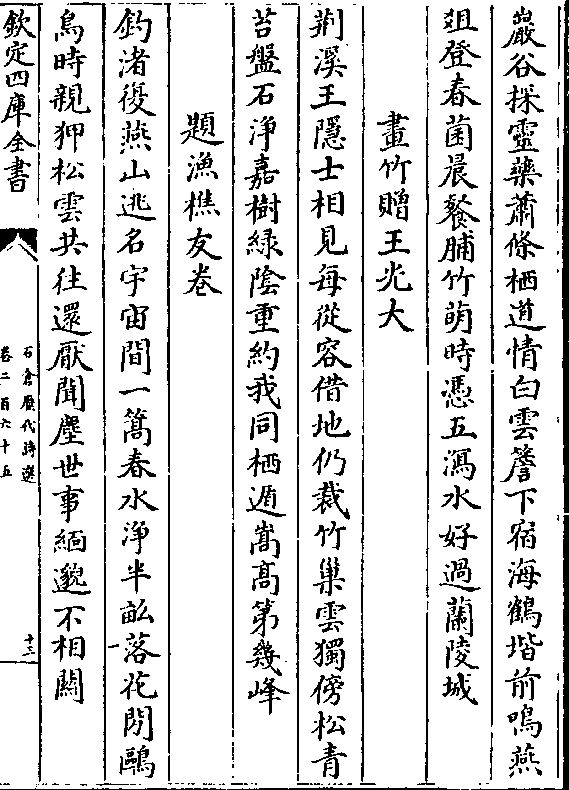 巖谷採靈藥蕭條栖道情白雲簷下宿海鶴堦前鳴燕
爼登春菌晨餐脯竹萌時憑五瀉水好過蘭陵城
畫竹贈王光大
荆溪王隱士相見每從容借地仍栽竹巢雲獨傍松青
苔盤石淨嘉樹緑隂重約我同栖遁嵩高第幾峰
題漁樵友卷
釣渚復燕山逃名宇宙間一篙春水淨半畝落花閒鷗
鳥時親狎松雲共往還厭聞塵世事緬邈不相關
欽定四庫全書
石倉歷代詩選
卷二百六十五
十三